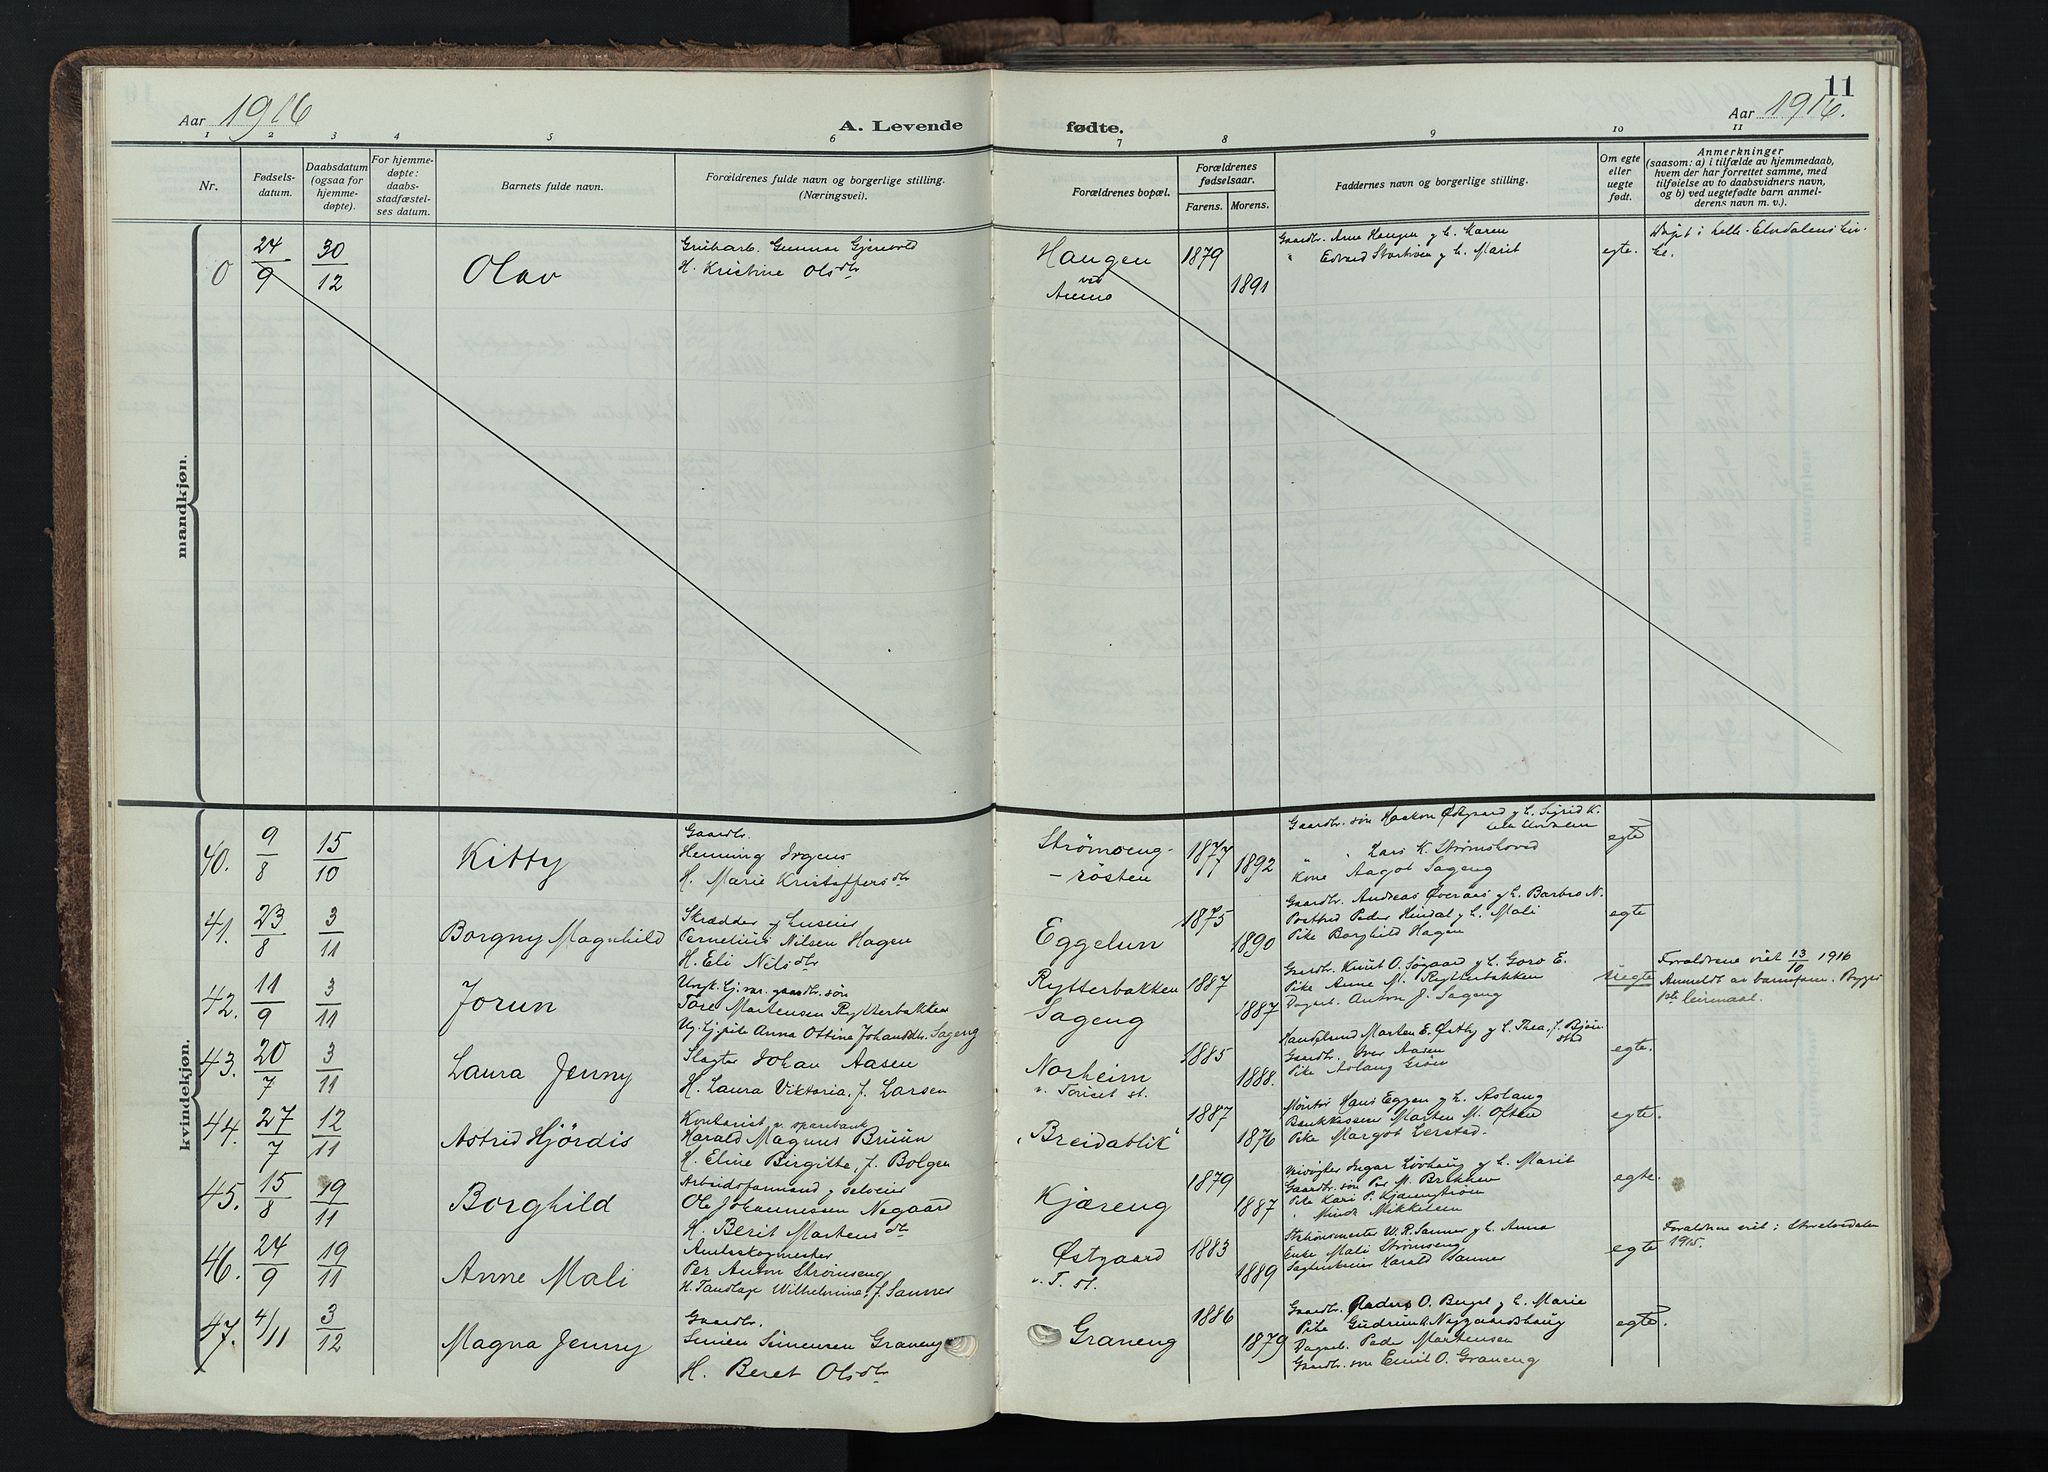 11
Aar 1916
A. Levende
fødte.
Aar 1916.
1 2 3 4 5 6 7 8 9 10 11
Nr.
Fødsels-
datum.
Daabsdatum
(ogsaa for
hjemme-
døpte).
For hjemme-
døpte:
daabs-
stadfæstel-
ses datum.
Barnets fulde navn.
Forældrenes fulde navn og borgerlige stilling.
(Næringsvei).
Forældrenes bopæl.
Forældrenes
fødselsaar.
Farens. Morens.
Faddernes navn og borgerlige stilling.
Om egte
eller
uegte
født.
Anmerkninger
(saasom: a) i tilfælde av hjemmedaab,
hvem der har forrettet samme, med
tilføielse av to daabsvidners navn,
og b) ved uegtefødte barn anmel-
derens navn m. v.).
mandkjøn.
0 24/9 30/12 Olav
Grubearb. Gunnar Gjerevold
H. Kristine Olsdtr
Haugen
ved
1879
1891
Gaardbr. Arne Haugen og h. Karen
" Edvard og h. Marit
egte.
Døpt i Lille-Elvdalens kir-
ke.
kvindekjøn.
40. 9/8 15/10 Kitty
Gaardbr.
Henning Irgens
H. Marie Kristoffersdtr
Strømseng-
-røsten
1877
1892
Gaardbr. søn Haakon Østgaard og h. Sigrid K.
" Lars K. Strømshoved
Kone Aagot Sageng
egte
41. 23/8 3/11 Borgny Magnhild
Skrædder og huseier
Pernelius Nilsen Hagen
H. Eli Nilsdtr
Eggelun
1875
1890
Gaardbr. Andreas Øveraas og h. Barbro N.
Postbud Peder Hindal og h. Mali
Pike Borghild Hagen
egte
42. 11/9 3/11 Jorun
Ungk. lj. var. gaardbr. søn
Tore Martensen Rytterbakken
Ug. lj. pike Anna Ottine Johansdtr. Sageng
Rytterbakken
Sageng
1887
1887
Gaardbr. Knut O. Søgaard og h. Goro E.
Pike Anne M. Rytterbakken
Dagarb. Anton J. Sageng
uegte
Forældrene viet 13/10 1916
Anmeldt av barnefaren. Bygges
43. 20/7 3/11 Laura Jenny
Slagter Johan Aasen
H. Laura Viktoria, f. Larsen
Norheim
v. Tønset st.
1885
1888.
Handelsmd Marten E. Østby og h. Thea, f. Bjøn-
stad
Gaardbr. Iver Aasen
Pike Aslaug Grøn
egte.
44. 27/7 12/11 Astrid Hjørdis
Kontorist v. sparebank
Harald Magnus Bruun
H. Eline Birgitte, f. Bolgen
"Breidablik"
1887
1876
Møntør Hans Eggen og h. Aslaug
Bankkasser Marten M. Often
Pike Margot Lerstad.
egte.
45. 15/8 19/11 Borghild
Arbeidsformand og selveier
Ole Johannessen Nygaard
H. Berit Martensdtr
Kjæreng
1879
1887
Ingar Løvhaug og h. Marit
Gaardbr. søn Per M. Brekken
Pike Kari P. Kjærengtrøen
" Minda Mikkelsen
egte.
46. 24/9 19/11 Anne Mali
Amtsskogmester
Per Anton Strømseng
H. Tandlæge Wilhelmine, f. Sanner
Østgaard
v. T. st.
1883
1889
Stationsmester W. R. Sanner og h. Anna
Enke Mali Strømseng
Sagbrukseier Harald Sanner
egte
Forældrene viet i
1915.
47. 4/11 3/12 Magna Jenny
Gaardbr.
Simen Simensen Graneng
H. Beret Olsdtr
Graneng
1886
1879
Gaardbr. Anders O. Berget og h. Marie
Pike Gudrun A. Nygaardshaug
Dagarb. Peder Martensen
Gaardbr. søn Emil O. Graneng
egte.